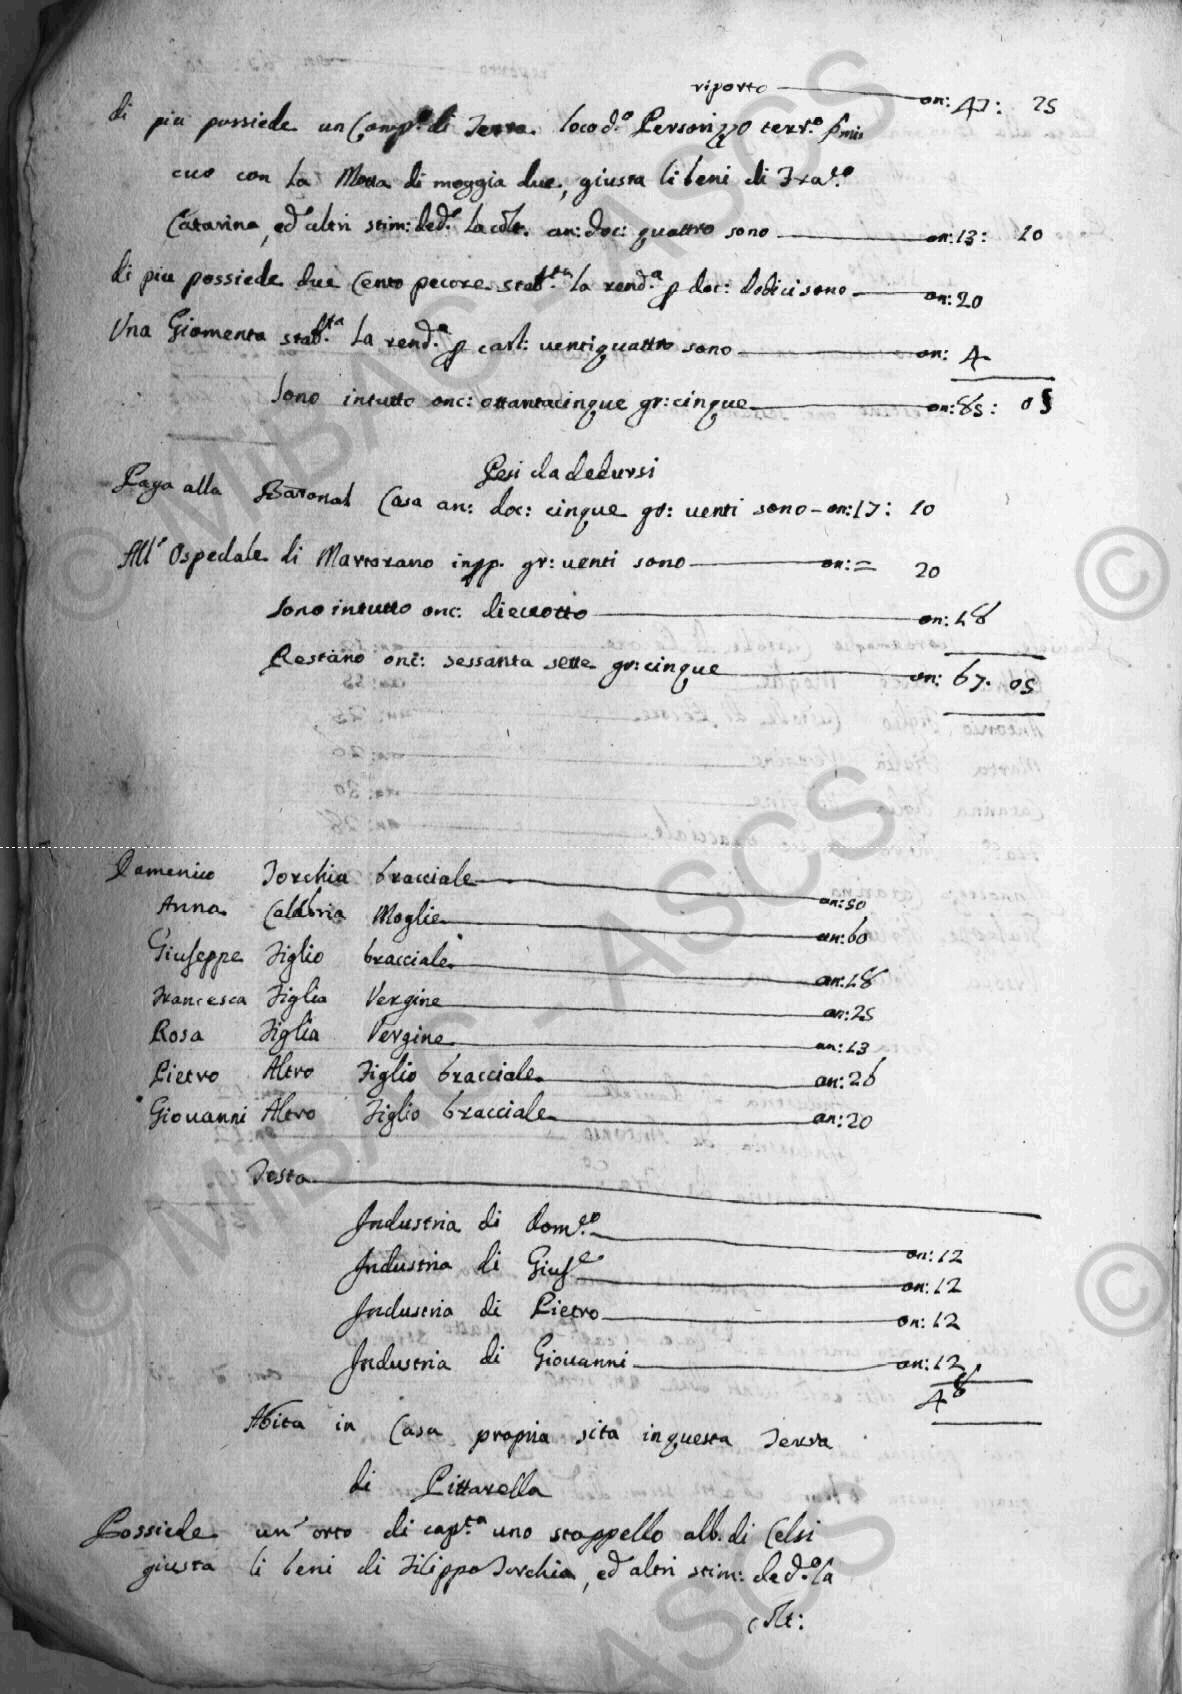 riporto on: 47: 25
di piu possiede un Comp.º di Terra loco d.º Personizzo terr.º
cuo con la Motta di moggia due, giusta li beni di Fra.co
Catarina, ed altri stim: ded.ª la colt. an: doc: quattro sono on: 13: 10
di piu possiede due Cento pecore stab.ta la rend.ª p doc: dodici sono on: 20
Una Giomenta stab.ta la rend.ª p carl: ventiquattro sono on: 4
Sono intutto onc: ottantacinque gr: cinque on: 85: 05
Pesi da dedursi
Paga alla Baronal Casa an: doc: cinque gr: venti sono on: 17: 10
All' Ospedale di Martorano gr: venti sono on: = 20
Sono intutto onc: dieciotto on: 18
Restano onc: sessanta sette gr: cinque on: 67. 05
Domenico Torchia bracciale an: 50
Anna Calabria Moglie an: 60
Giuseppe Figlio bracciale an: 18
Francesca Figlia Vergine an: 25
Rosa Figlia Vergine an: 13
Pietro Altro Figlio bracciale an: 26
Giovanni Altro Figlio bracciale an: 20
Testa
Industria di Dom.co on: 12
Industria di Gius.e on: 12
Industria di Pietro on: 12
Industria di Giovanni on: 12
48
Abita in Casa propria sita in questa Terra
di Pittarella
Possiede un' orto di cap.tà uno stoppello alb. di Celsi
giusta li beni di Filippo Torchia, ed altri stim: ded.ª la
colt:
© MiBAC - ASCS ©
© MiBAC - ASCS ©
ASCS